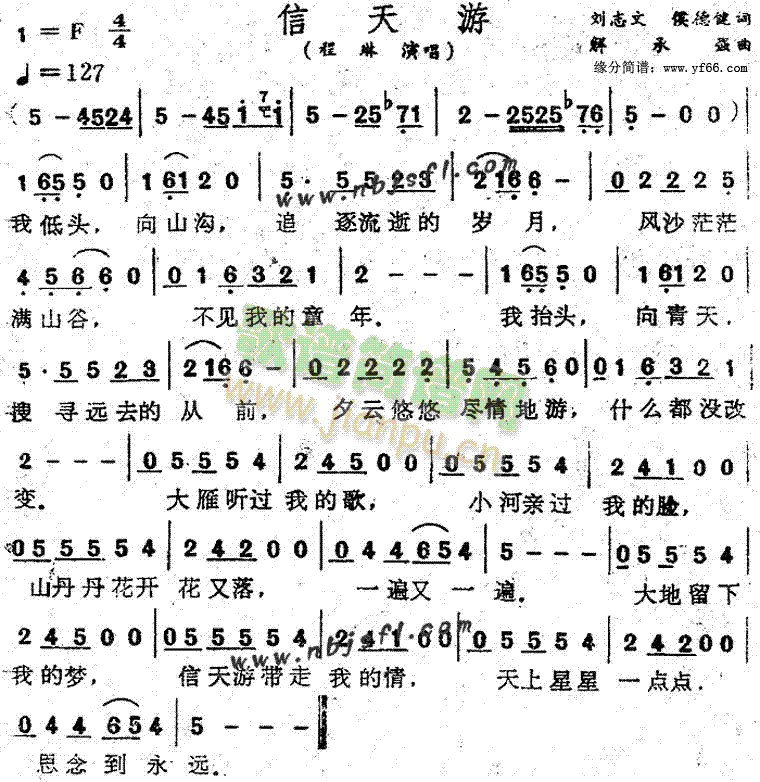 信天游
1 = F 4/4
(程琳 演唱)
刘志文 侯德健词
解承强曲
♩=127
缘分简谱：www.yf66.com
( 5 - 4524 | 5 - 45 1 1 | 5 - 25 ♭71 | 2 - 2525 ♭76 | 5 - 0 0 ) |
1 65 5 0 | 1 61 2 0 | 5 · 5 5 2 3 | 2 16 6 - | 0 2 2 2 2 5
www.nbjsfl.com
我低头， 向山沟， 追 逐流逝的 岁 月， 风沙茫茫
4 5 6 6 0 | 0 1 6 3 2 1 | 2 - - - | 1 65 5 0 | 1 61 2 0 |
满山谷， 不见我的童 年． 我抬头， 向青天．
歌谱简谱网
5 · 5 5 2 3 | 2 16 6 - | 0 2 2 2 2 | 5 4 5 6 0 | 0 1 6 3 2 1 |
www.jianpu.cn
搜 寻远去的 从 前， 夕云悠悠 尽情地游， 什么都没改
2 - - - | 0 5 5 5 5 4 | 2 4 5 0 0 | 0 5 5 5 5 4 | 2 4 1 0 0 |
变． 大雁听过 我的歌， 小河亲过 我的脸，
0 5 5 5 5 5 4 | 2 4 2 0 0 | 0 4 4 6 5 4 | 5 - - - | 0 5 5 5 5 4 |
山丹丹花开 花又落， 一遍又一遍． 大地留下
2 4 5 0 0 | 0 5 5 5 5 5 4 | 2 4 1 0 0 | 0 5 5 5 5 4 | 2 4 2 0 0 |
www.nbjsfl.com
我的梦， 信天游带走 我的情， 天上星星 一点点．
0 4 4 6 5 4 | 5 - - - ‖
思念到永远．